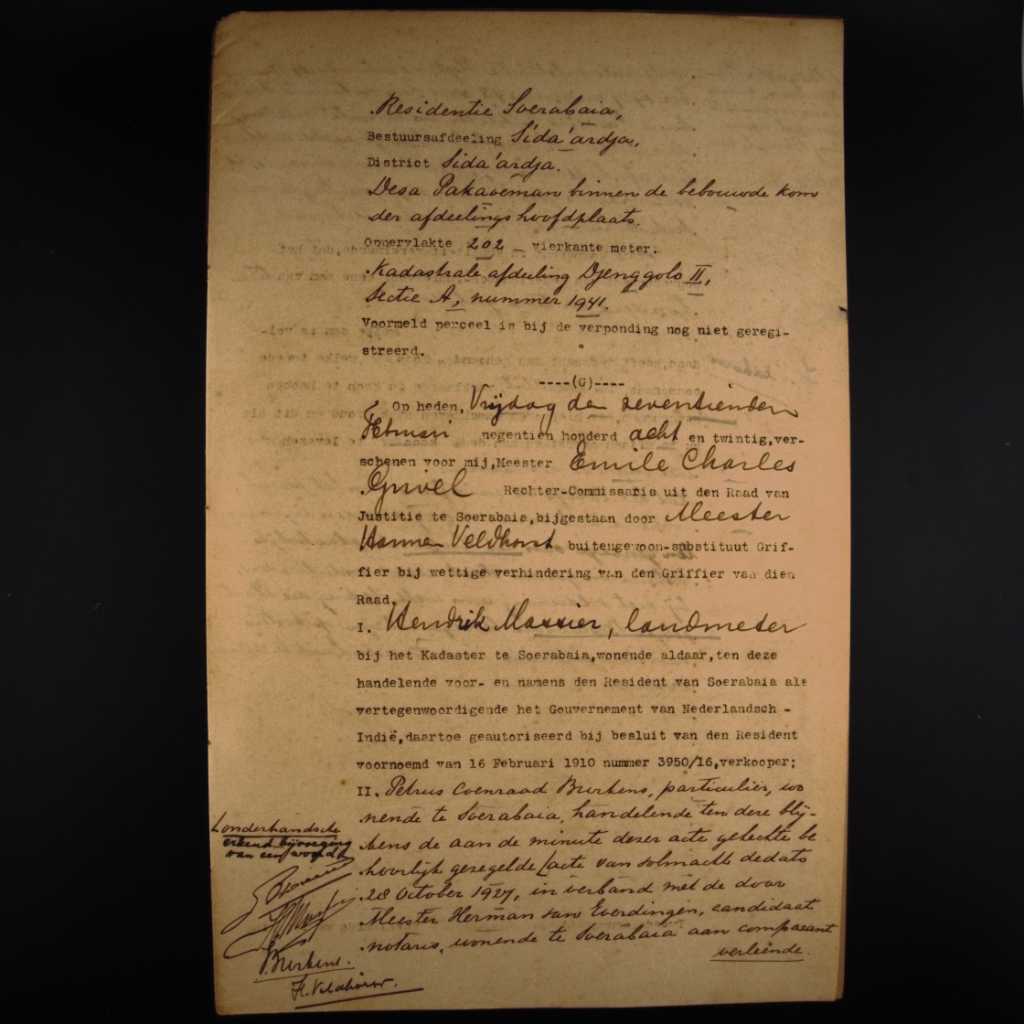 Residentie Soerabaia,
Bestuursafdeeling Sida'ardja,
District Sida'ardja.
Desa Pakaoeman binnen de bebouwde kom
der afdeelings hoofdplaats.
Oppervlakte 202 _ vierkante meter.
Kadastrale afdeeling Djenggolo II,
Sectie A, nummer 1941.
Voormeld perceel is bij de verponding nog niet geregi-
streerd.
----(G)----
Op heden, Vrijdag den zeventienden
Februari negentien honderd acht en twintig, ver-
schenen voor mij, Meester Emile Charles
Rechter-Commissaris uit den Raad van
Justitie te Soerabaia, bijgestaan door Meester
Veldhorst buitengewoon-substituut Grif-
fier bij wettige verhindering van den Griffier van dien
Raad.
I. Hendrik Massier, landmeter
bij het Kadaster te Soerabaia, wonende aldaar, ten deze
handelende voor- en namens den Resident van Soerabaia als
vertegenwoordigende het Gouvernement van Nederlandsch -
Indië, daartoe geautoriseerd bij besluit van den Resident
voornoemd van 16 Februari 1910 nummer 3950/16, verkooper;
II. Petrus Coenraad Burkens, particulier, wo
nende te Soerabaia, handelende ten deze blij-
kens de aan de minute dezer acte gehechte be
hoorlijk gezegelde acte van volmacht de dato
28 October 1927, in verband met de door
Meester Herman van Everdingen, candidaat
notaris, wonende te Soerabaia aan comparant
verleende.
onderhandsche
erkend bijvoeging
van een woord
Burkens.